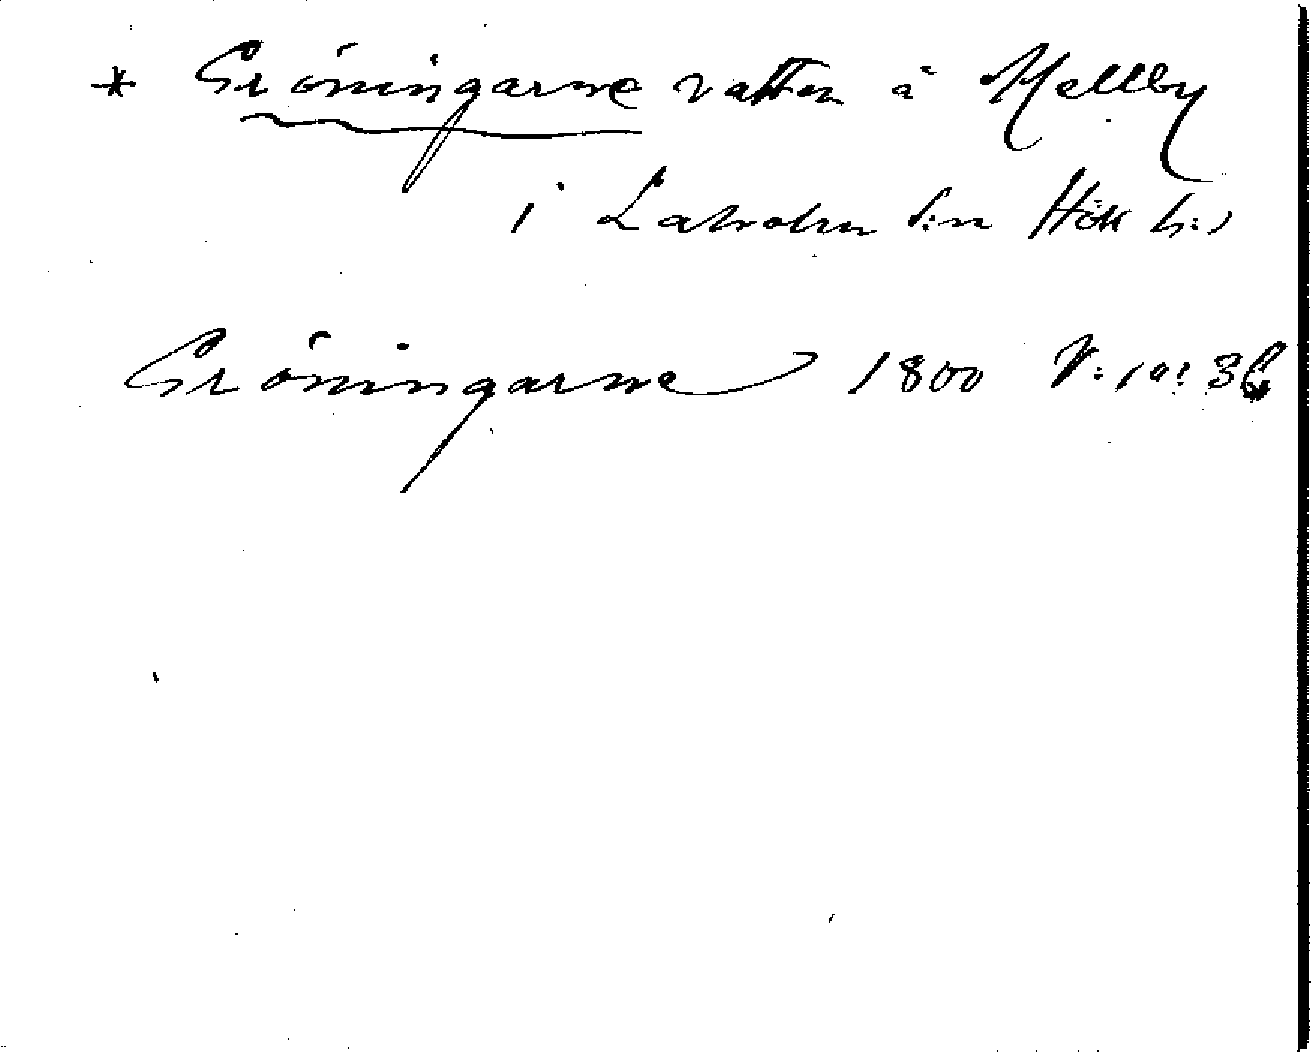 * Gröningarne vatten å Mellby
i Laholm s:n Hök h:d
Gröningarne 1800 V: 10: 36